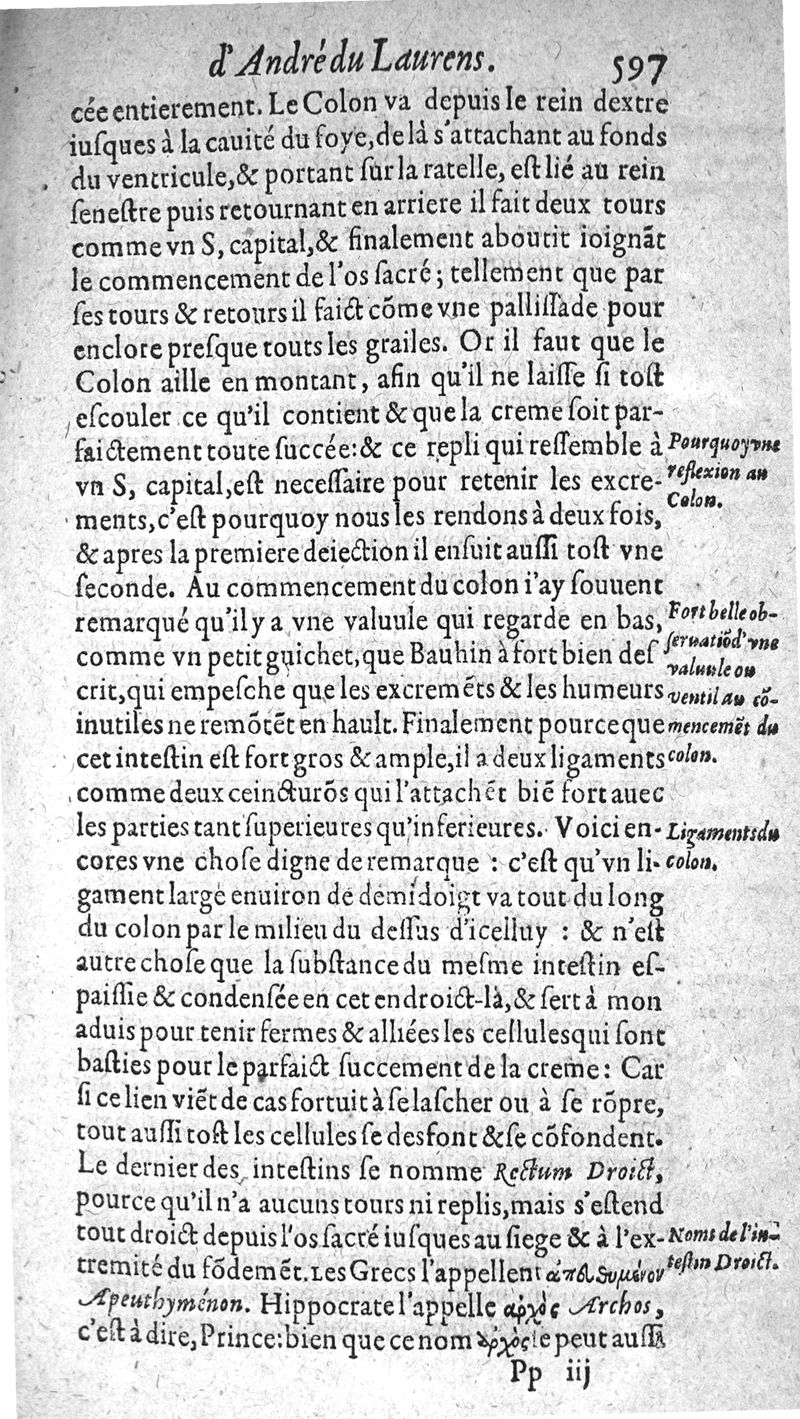 d'André du Laurens. 597
cée entierement. Le Colon va depuis le rein dextre
iuſques à la cauité du foye, de là s'attachant au fonds
du ventricule, & portant ſur la ratelle, eſt lié au rein
ſeneſtre puis retournant en arriere il fait deux tours
comme vn S, capital, & finalement aboutit ioignãt
le commencement de l'os ſacré; tellement que par
ſes tours & retours il faict cõme vne palliſſade pour
enclore preſque touts les grailes. Or il faut que le
Colon aille en montant, afin qu'il ne laiſſe ſi toſt
eſcouler ce qu'il contient & que la creme ſoit par-
faictement toute ſuccée: & ce repli qui reſſemble à
vn S, capital, eſt neceſſaire pour retenir les excre-
ments, c'eſt pourquoy nous les rendons à deux fois,
& apres la premiere deiection il enſuit auſſi toſt vne
ſeconde. Au commencement du colon i'ay ſouuent
remarqué qu'il y a vne valuule qui regarde en bas,
comme vn petit guichet, que Bauhin à fort bien deſ
crit, qui empeſche que les excremẽts & les humeurs
inutiles ne remõtẽt en hault. Finalement pource que
cet inteſtin eſt fort gros & ample, il a deux ligaments
comme deux ceincturõs qui l'attachẽt biẽ fort auec
les parties tant ſuperieures qu'inferieures. Voici en-
cores vne choſe digne de remarque : c'eſt qu'vn li-
gament large enuiron de demi doigt va tout du long
du colon par le milieu du deſſus d'icelluy : & n'eſt
autre choſe que la ſubſtance du meſme inteſtin eſ-
paiſſie & condenſée en cet endroict-là, & ſert à mon
aduis pour tenir fermes & alliées les cellules qui ſont
baſties pour le parfaict ſuccement de la creme: Car
ſi ce lien viẽt de cas fortuit à ſe laſcher ou à ſe rõpre,
tout auſſi toſt les cellules ſe desfont & ſe cõfondent.
Le dernier des inteſtins ſe nomme Rectum Droict,
pource qu'il n'a aucuns tours ni replis, mais s'eſtend
tout droict depuis l'os ſacré iuſques au ſiege & à l'ex-
tremité du fõdemẽt. Les Grecs l'appellent ἀπευθυμένον
Apeuthyménon. Hippocrate l'appelle ἀρχὸς Archos,
c'eſt à dire, Prince: bien que ce nom ἀρχὸς ſe peut auſſi
Pp iij
Pourquoy vne
reflexion au
Colon.
Fort belle ob-
ſeruatiõ d'vne
valuule ou
ventil au cõ-
mencemẽt du
colon.
Ligaments du
colon.
Noms de l'in-
teſtin Droict.